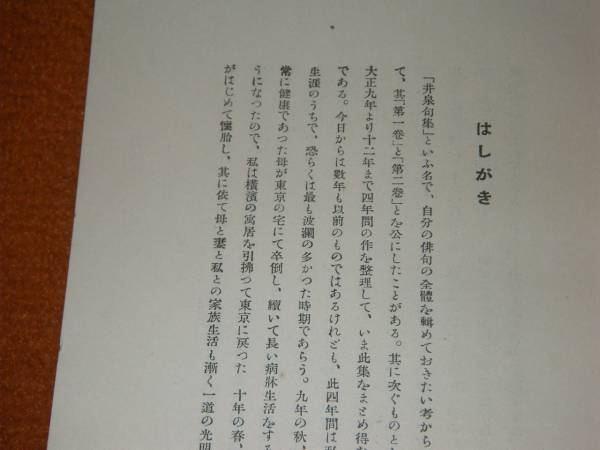 はしがき
「井泉句集」といふ名で、自分の俳句の全體を輯めておきたい考から
て、其「第一卷」と「第二卷」とを公にしたことがある。其に次ぐものと
大正九年より十二年まで四年間の作を整理して、いま此集をまとめ得
である。今日からは數年も以前のものではあるけれども、此四年間は私
生涯のうちで、恐らくは最も波瀾の多かつた時期であらう。九年の秋、
常に健康であつた母が東京の宅にて卒倒し、續いて長い病牀生活をする
うになつたので、私は横濱の寓居を引拂つて東京に戻つた　十年の春、
がはじめて懷胎し、其に依て母と妻と私との家族生活も漸く一道の光明